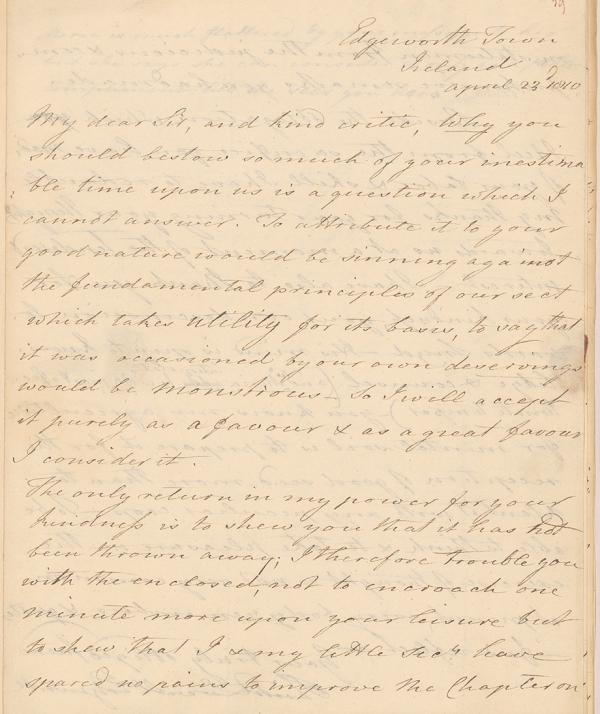 39
Edgeworth Town
Ireland
april 23d 1810
My dear Sir, and kind critic, Why you
should bestow so much of your inestima
ble time upon us is a question which I
cannot answer. To attribute it to your
good nature would be sinning against
the fundamental principles of our sect
which takes utility for its basis, to say that
it was occasioned by your own deservings
would be monstrous – So I will accept
it purely as a favour & as a great favour
I consider it.
The only return in my power for your
kindness is to shew you that it has not
been thrown away; I therefore trouble you
with the enclosed, not to encroach one
minute more upon your leisure but
to shew that I & my little Secy have
spared no pains to improve the Chapter on